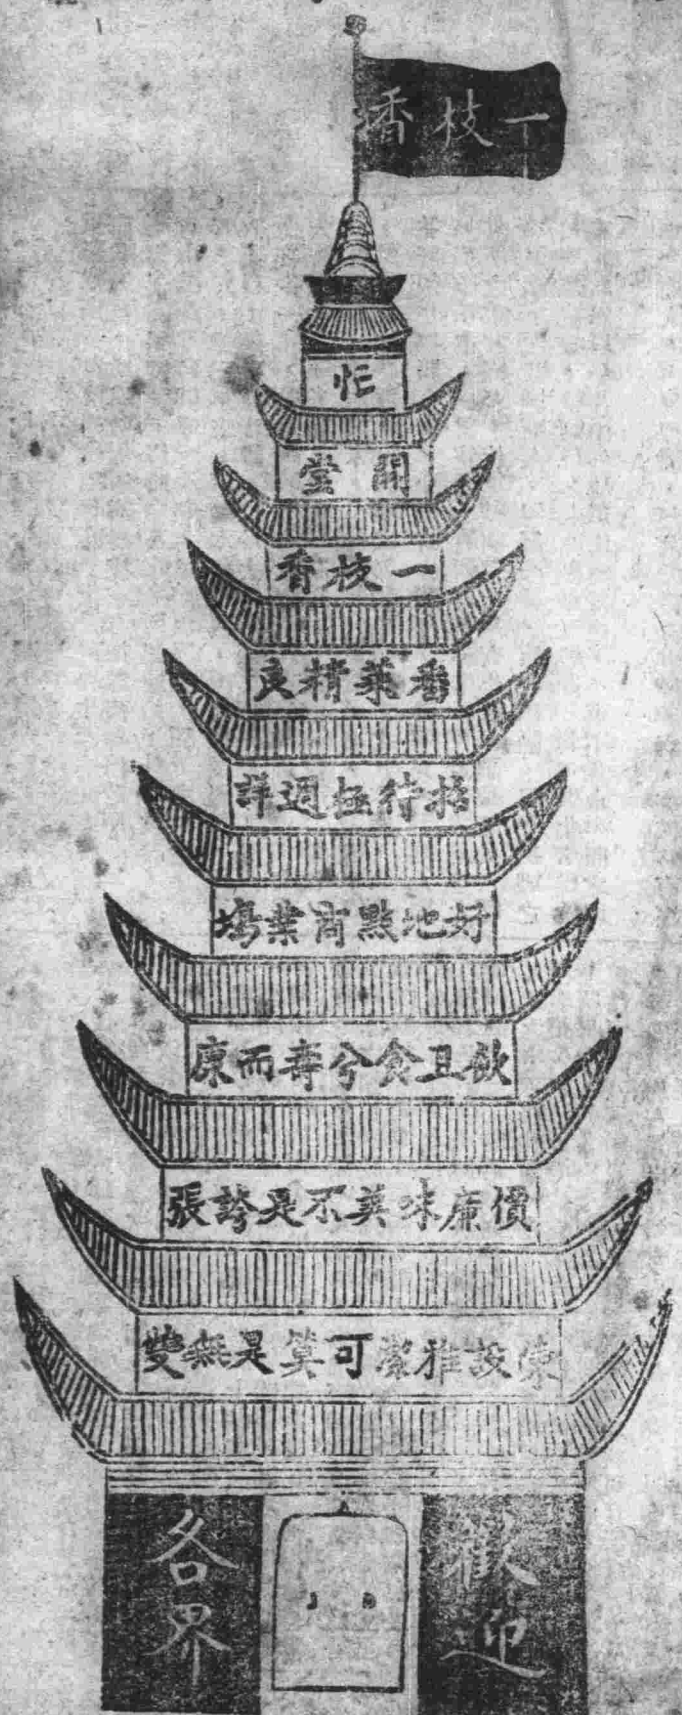 一枝香
忙
開堂
一枝香
番菜精良
招待極週詳
好地點商業塲
飲且食兮壽而康
價廉味美不是誇張
陳設雅潔可算是無雙
歡迎
各界